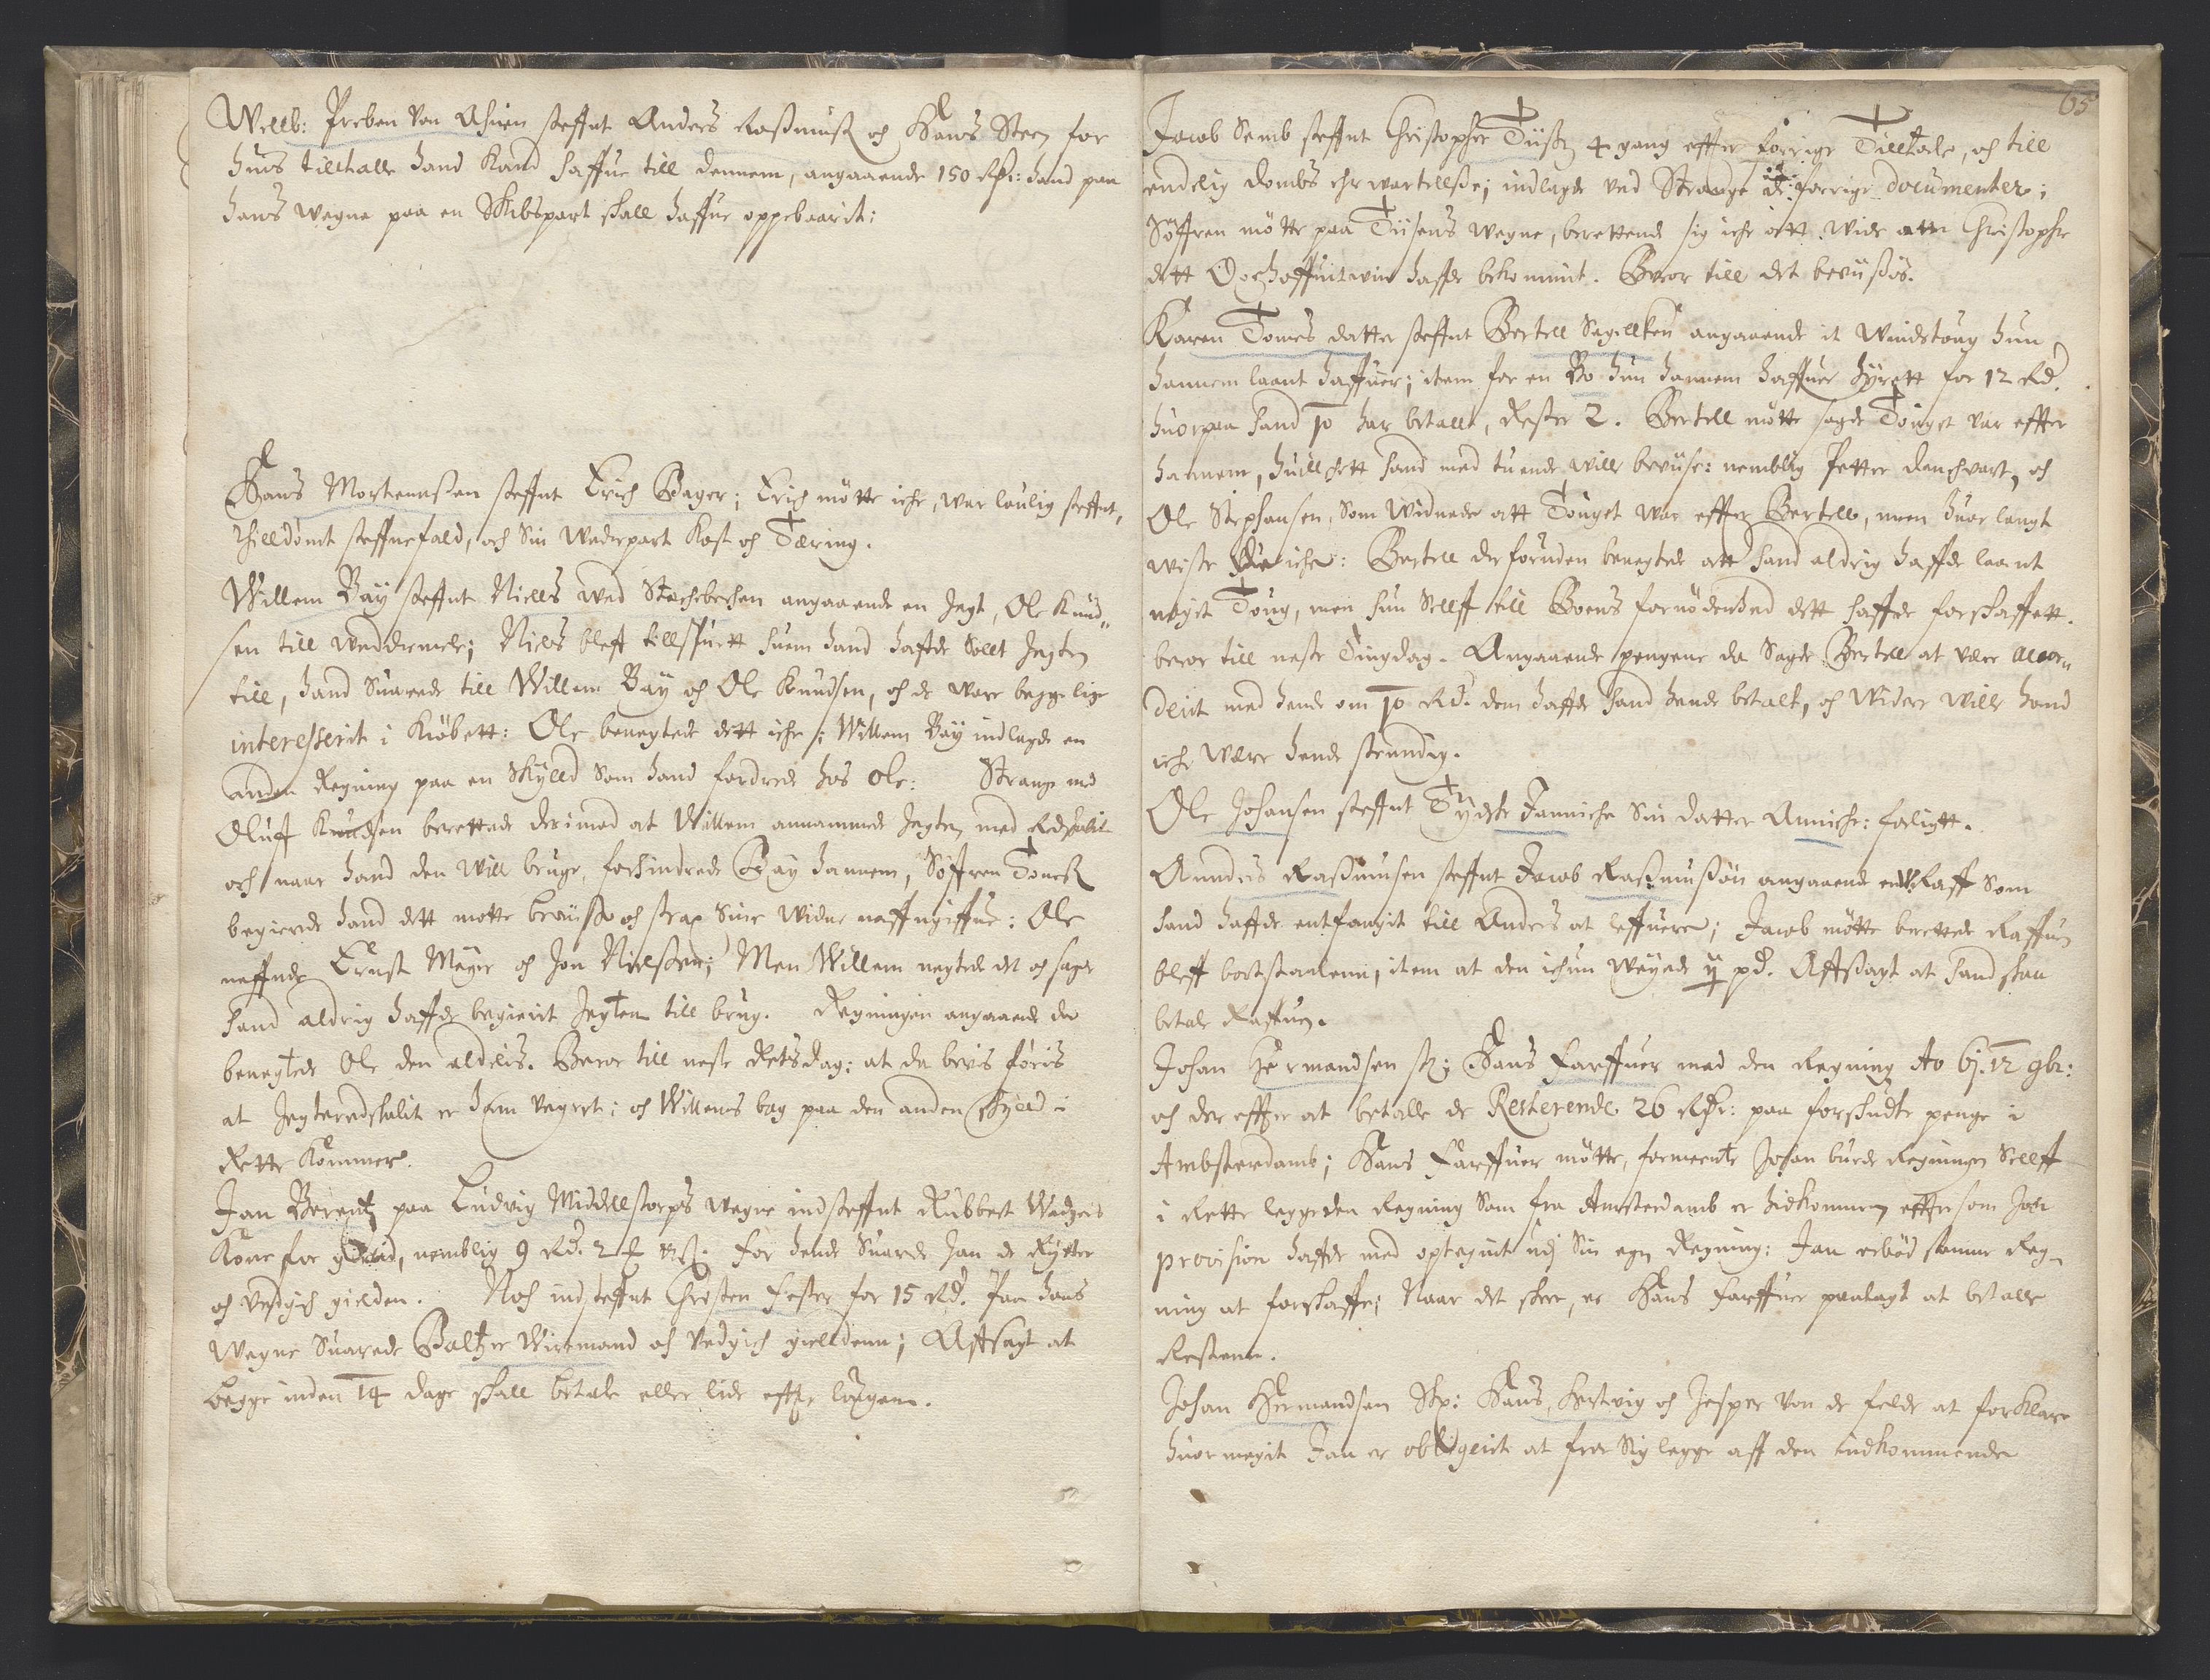 Wellb: Preben von Ahnen steffnt Anders Rasmuss och Hans Steen for
huis tilltalle hand kand haffue till dennem, angaaende 150 Rdr: hand paa
hans wegne paa en Skibspart skall haffue oppebaarit:
Hans Mortenssen steffnt Erich Bager; Erich mötte iche, war loulig steffnt,
Thilldömt steffnefald, och Sin Wederpart Kost och Tæring.
Willem Bay steffnt Niells wed Stochebechen angaaende en Jegt, Ole Knud-
sen till weddermele; Niels bleff tillspurt huem hand hafde Sollt Jegten
till, hand Suarede till Willem Bay och Ole Knudsen, och de ware begge lige
interesserit i Kiöbett: Ole benegtede dett iche; Willem Bay indlagde en
anden Regning paa en Skylld Som hand fordrede hos Ole: Strange med
Oluff Knudsen berettede derimod at Willem annammede Jegten med Redskabit
och naar hand den will bruge, forhindrede Bay hannem, Söffren Toness
begierede hand dett motte beuisse och strax Sine Widne naffngiffue: Ole
neffnde Ernst Meyer och Jon Nielssen; Men Willem negtede det och sagde
hand aldrig haffde begierit Jegten till brug. Regningen angaaende da
benegtede Ole den aldelis. Beror till neste Retsdag: at da bevis föris
at Jegteredskabit er ham wegret; och Willems bog paa den anden Skyld i
Rette Kommer.
Jan Berentz paa Ludvig Middellstorps wegne indsteffnt Rubbert Wedgers
Kone for gield, nemblig 9 Rd. 2 For hende Suarede Jan de Ryter
och vedgich gielden. Noch indsteffnt Chresten Fester for 15 Rd. Paa hans
Wegne Suarede Baltzer Wiremand och vedgich gielldenn; Affsagt at
begge inden 14 dage skall betale eller lide effter lougen.
65
Jacob Semb steffnt Christopher Tiissen 4 gang effter forrige Tilltale, och till
endelig dombs ehrwartellsse; indlagde ved Strange de forrige documenter;
Söffren mötte paa Tiisens wegne, berettende sig iche ått wide att Christopher
dett Oxhoffuit win haffde bekommit. Beror till det beuissis.
Karen Tomes datter steffnt Bertell Segellken angaaende it Windetoug hun
hannem laant haffuer; item for en Bo hun hannem haffuer hyrett for 12 Rd.
huorpaa hand 10 har betallt, Rester 2. Bertell mötte sagde Touget var effter
hannem, huillchett hand med tuende wille beuise: nemblig Petter Danchvart, och
Ole Stephansen, Som Widnede att Touget war effter Bertell, men huor langt
wiste de iche: Bertell desforuden benegtede att hand aldrig haffde laant
nogit Toug, men hun Sellff till Boens fornödenhed dett haffde forskaffett.
beror till neste Tingdag. Angaaende pengene da Sagde Bertell at være accor-
derit med hende om 10 Rd. dem haffde hand hende betalt, och Widere wille hand
iche være hende stendig.
Ole Johansen steffnt Tydske Jannicke Sin datter Anniche: forligtt.
Anders Rasmussen steffnt Jacob Rasmussön angaaende en Raff Som
hand haffde entfangit till Anders at leffuere; Jacob mötte berettede Raffuen
bleff bortstaalenn, item at den ichun weyede pd. Affsagt at hand skall
betale Raffuen.
Johan Hermandsen st: Hans Farffuer med den Regning Ao 61. 12 9br:
och der effter at betalle de Resterende 26 Rdr: paa forskudte penge i
Ambsterdamb; Hans Farffuer mötte, formeente Johan burde Regningen Sellff
i Rette legge den Regning Som fra Amsterdamb er hidkommen effter som Jan
provision haffde med optegnit udj Sin egen Regning: Jan erböd samme Reg-
ning at forskaffe; Naar det skeer, er Hans Farffuer paalagt at betalle
Restenn.
Johan Hermandsen Sta: Hans, Hertvig och Jesper von de Felde at forklare
huor megit Jan er obligerit at fra Sig legge aff den indkommende